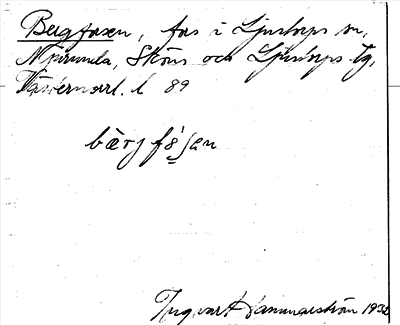 Bergfasen, fas i Ljustorps sn,
Njurunda, Sköns och Ljustorps tg,
Västernorrl. l 89
bærjfá̱sen
Ingvart Hammarström 1932